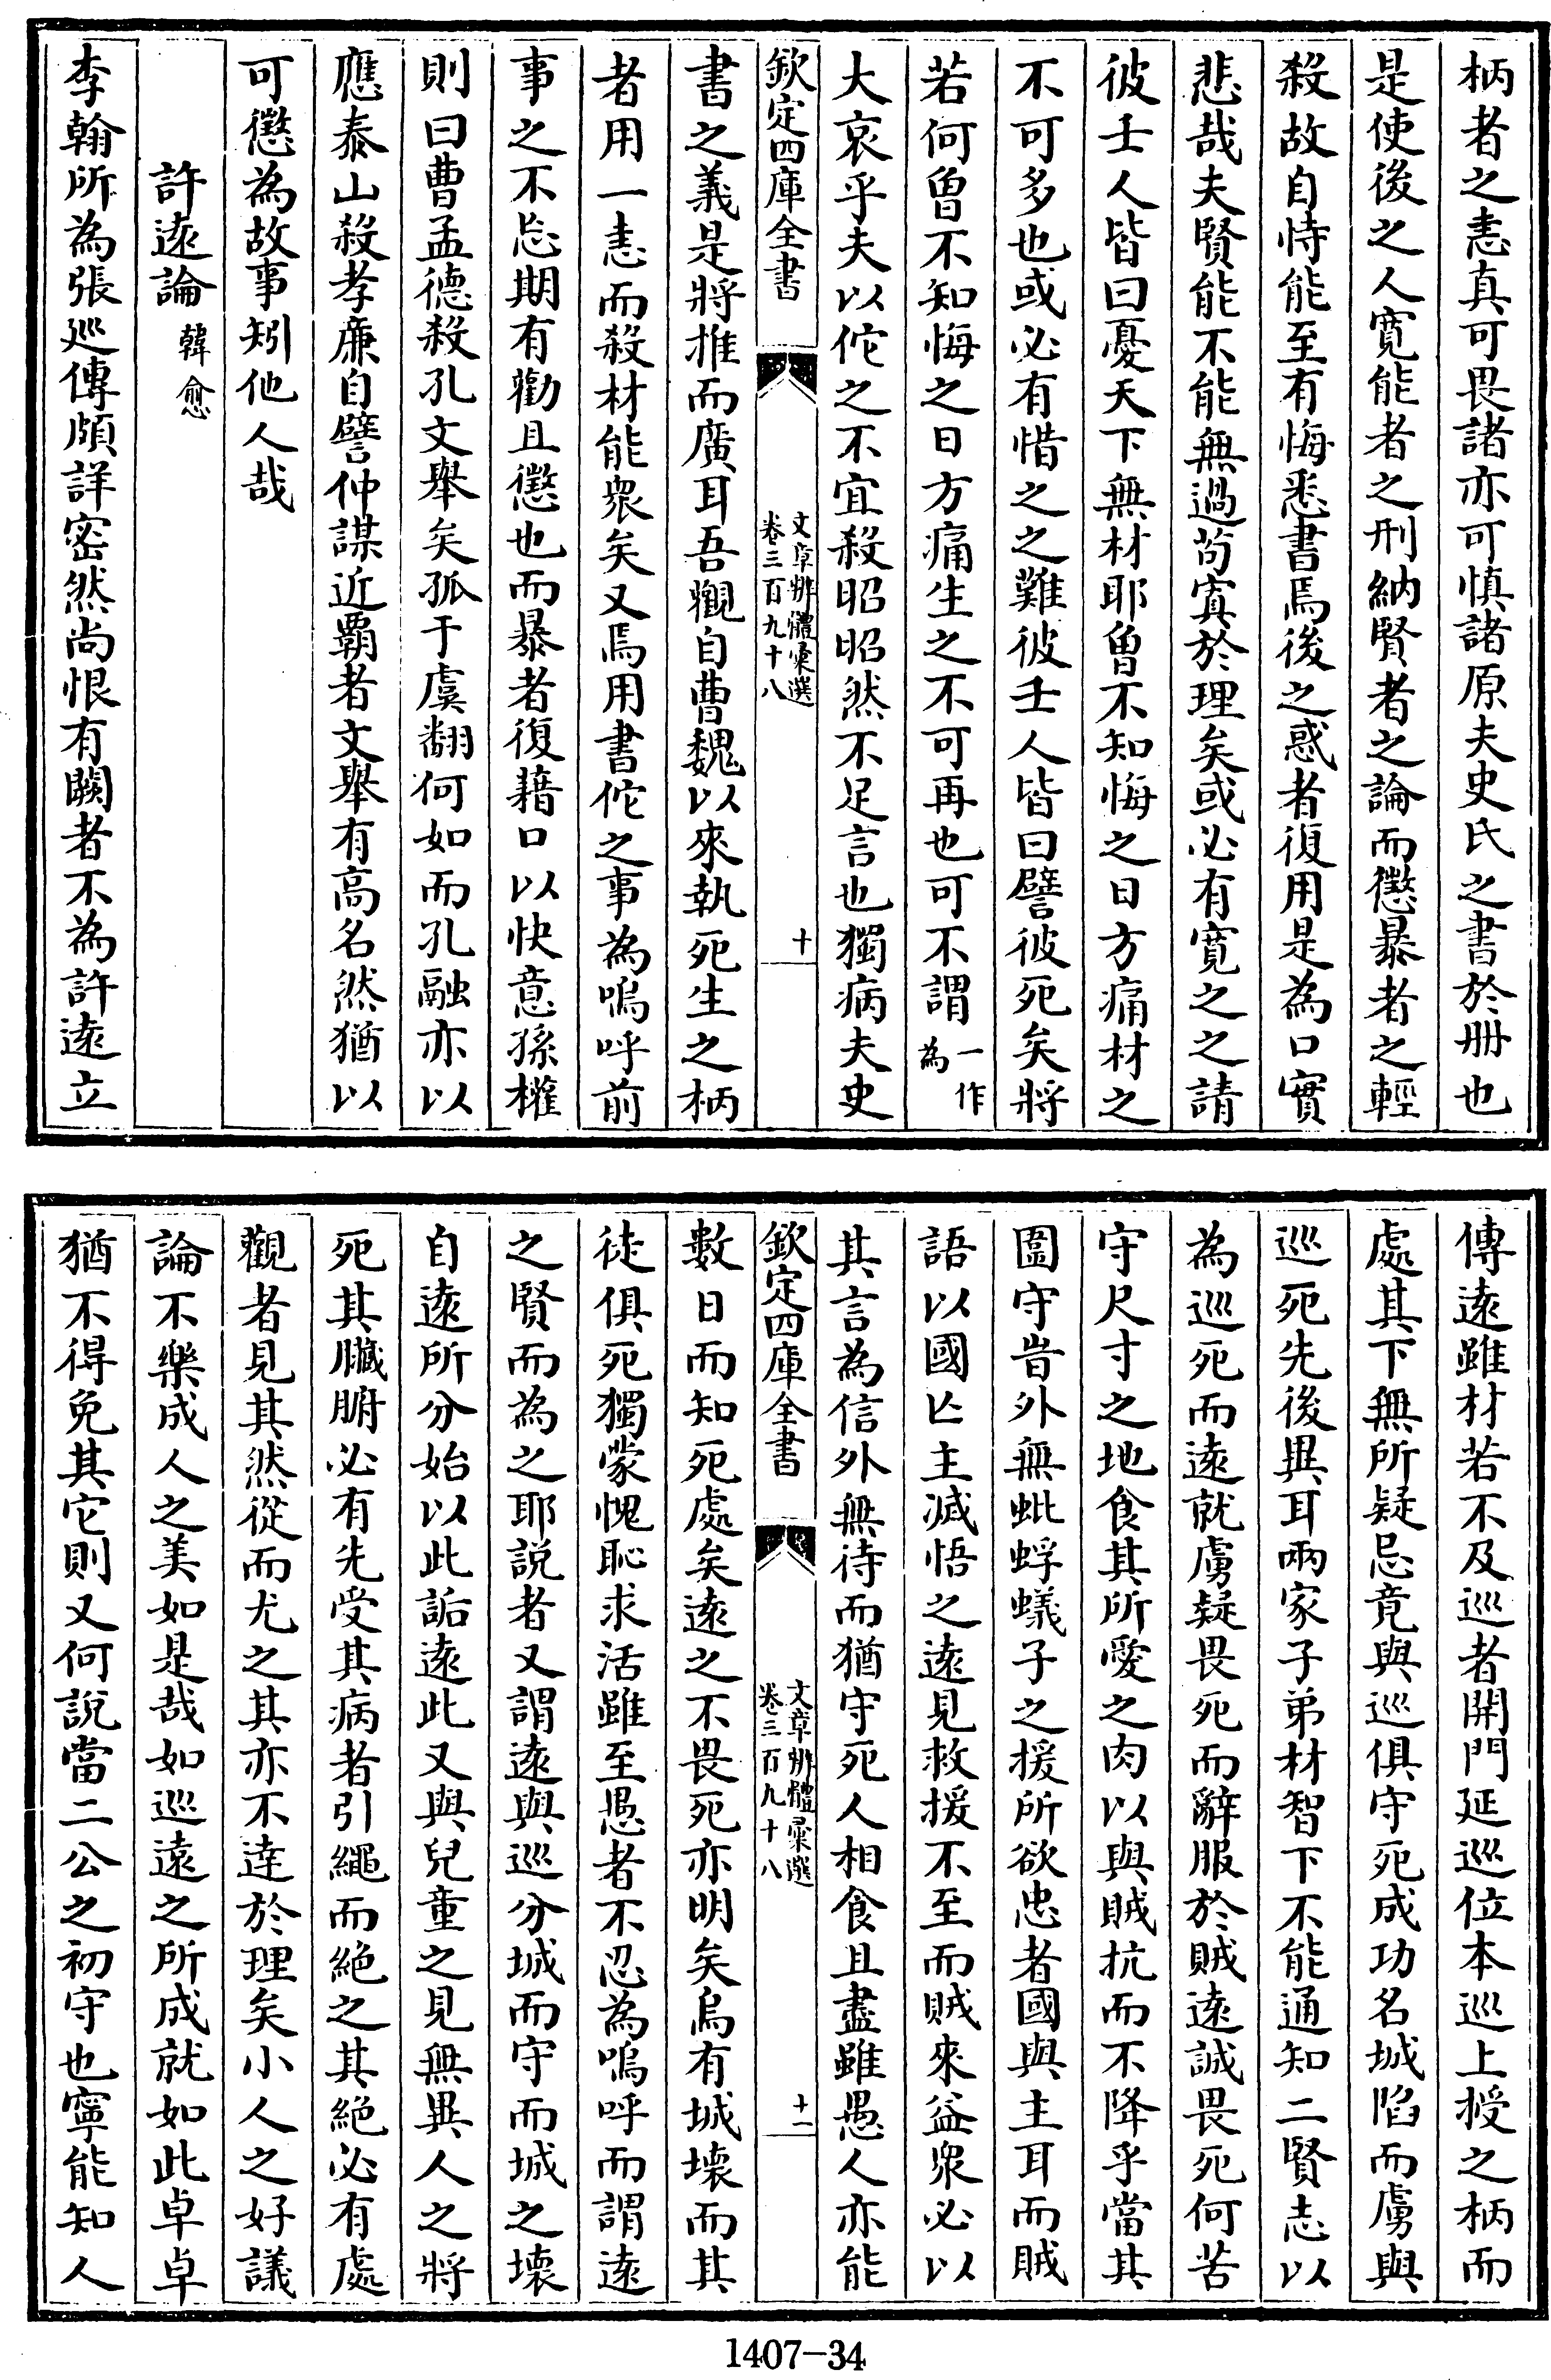 柄者之恚真可畏諸亦可慎諸原夫史氏之書於册也
是使後之人寛能者之刑納賢者之論而懲暴者之輕
殺故自恃能至有悔悉書焉後之惑者復用是為口實
悲哉夫賢能不能無過苟寘於理矣或必有寛之之請
彼壬人皆曰憂天下無材耶曾不知悔之日方痛材之
不可多也或必有惜之之難彼壬人皆曰譬彼死矣將
若何曾不知悔之日方痛生之不可再也可不謂一作為
大哀乎夫以佗之不宜殺昭昭然不足言也獨病夫史
欽定四庫全書 文章辨體彚選 卷三百九十八 十
書之義是將推而廣耳吾觀自曹魏以來執死生之柄
者用一恚而殺材能衆矣又焉用書佗之事為嗚呼前
事之不忘期有勸且懲也而暴者復藉口以快意孫權
則曰曹孟德殺孔文舉矣孤于虞翻何如而孔融亦以
應泰山殺孝廉自譬仲謀近覇者文舉有高名然猶以
可懲為故事矧他人哉
許遠論 韓愈
李翰所為張廵傳頗詳密然尚恨有闕者不為許遠立
傳遠雖材若不及巡者開門延巡位本巡上授之柄而
處其下無所疑忌竟與巡俱守死成功名城陷而虜與
巡死先後異耳兩家子弟材智下不能通知二賢志以
為巡死而遠就虜疑畏死而辭服於賊遠誠畏死何苦
守尺寸之地食其所愛之肉以與賊抗而不降乎當其
圍守旹外無蚍蜉蟻子之援所欲忠者國與主耳而賊
語以國亡主滅悟之遠見救援不至而賊來益衆必以
其言為信外無待而猶守死人相食且盡雖愚人亦能
欽定四庫全書 文章辨體彚選 卷三百九十八 十一
數日而知死處矣遠之不畏死亦明矣烏有城壊而其
徒俱死獨蒙愧恥求活雖至愚者不忍為嗚呼而謂遠
之賢而為之耶説者又謂遠與巡分城而守而城之壊
自遠所分始以此詬遠此又與兒童之見無異人之將
死其臓腑必有先受其病者引繩而絶之其絶必有處
觀者見其然從而尤之其亦不逹於理矣小人之好議
論不樂成人之美如是哉如巡遠之所成就如此卓卓
猶不得免其它則又何説當二公之初守也寧能知人
1407-34